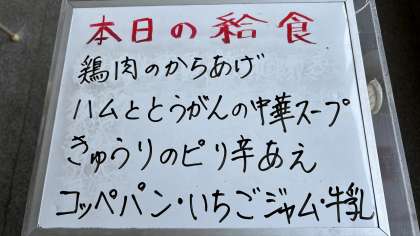 本日の給食
鶏肉のからあげ
ハムととうがんの中華スープ
きゅうりのピリ辛あえ
コッペパン・いちごジャム・牛乳